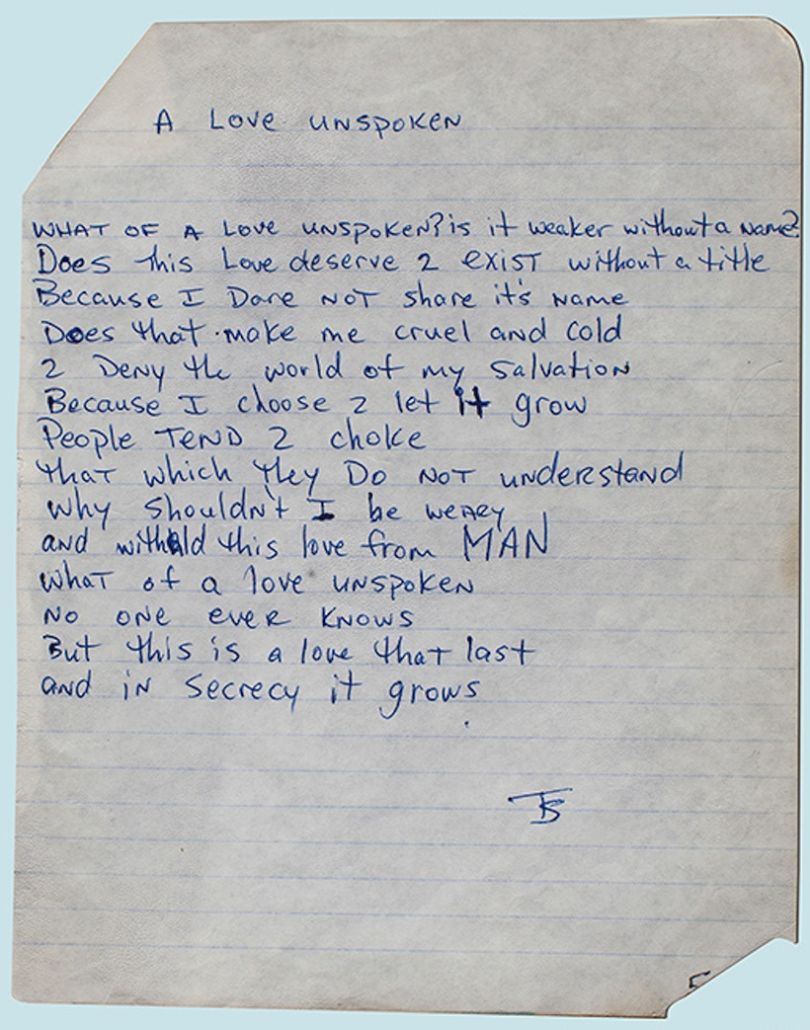 A Love UNSPOKEN
WHAT OF A LOVE UNSPOKEN? is it weaker without a Name?
Does this Love deserve 2 exist without a title
Because I Dare NOT share it's Name
Does that make me cruel and cold
2 Deny the world of my salvation
Because I choose 2 let it grow
People TEND 2 choke
that which they DO NOT understand
why shouldn't I be weary
and withhld this love from MAN
what of a love unspoken
No one ever knows
But this is a love that last
and in secrecy it grows